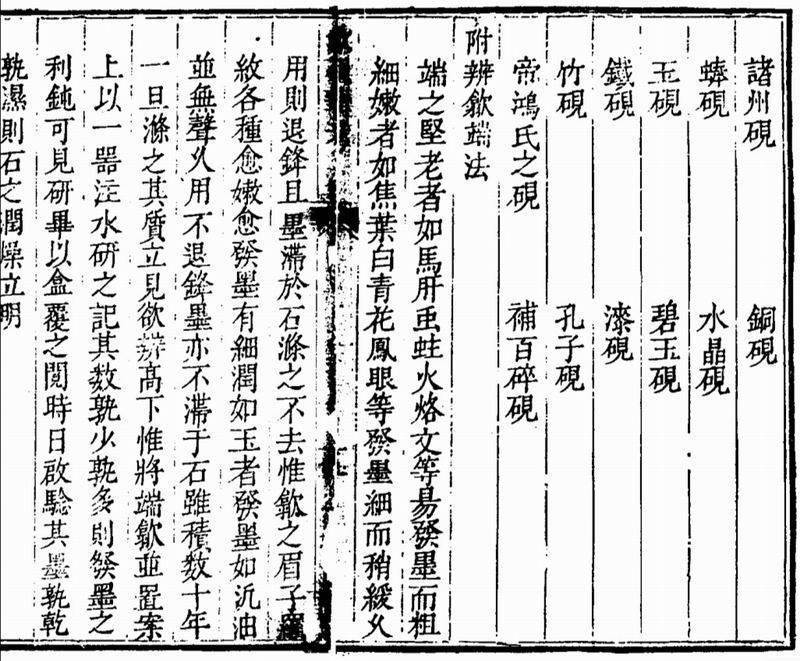 諸州硯 銅硯
蜯硯 水晶硯
玉硯 碧玉硯
鐵硯 漆硯
竹硯 孔子硯
帝鴻氏之硯 補百碎硯
附辨歙端法
端之堅老者如馬肝虫蛀火烙文等易發墨而粗
細嫩者如焦葉白青花鳳眼等發墨細而稍緩乆
用則退鋒且墨滯於石滌之不去惟歙之眉子羅
紋各種愈嫩愈發墨有細潤如玉者發墨如汎油
並無聲乆用不退鋒墨亦不滯于石雖積数十年
一旦滌之其質立見欲辨高下惟將端歙並置案
上以一器注水研之記其数孰少孰多則發墨之
利鈍可見研畢以盒覆之閱時日啟驗其墨孰乾
孰濕則石之潤燥立明